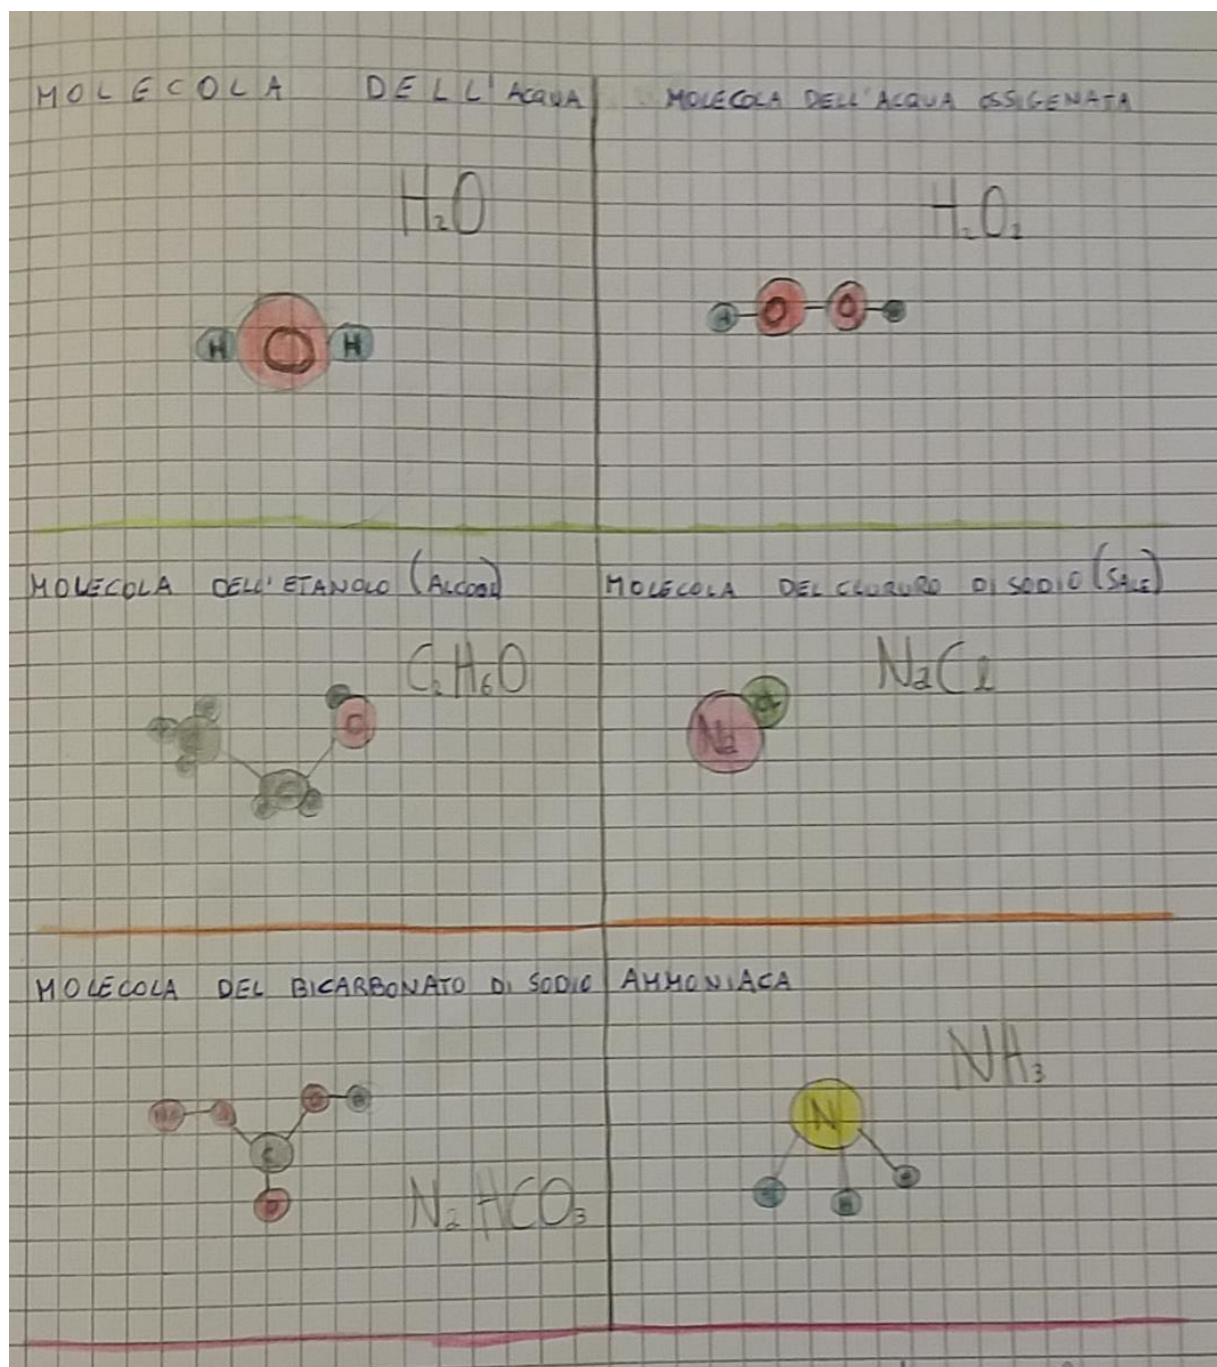 MOLECOLA DELL'ACQUA
H₂O
H O H
MOLECOLA DELL'ACQUA OSSIGENATA
H₂O₂
H O O
MOLECOLA DELL'ETANOLO (ALCOOL)
C₂H₆O
O
C
MOLECOLA DEL CLORURO DI SODIO (SALE)
NaCl
Cl
Na
MOLECOLA DEL BICARBONATO DI SODIO
Na O O H
C
O
NaHCO₃
AMMONIACA
NH₃
N
H H H